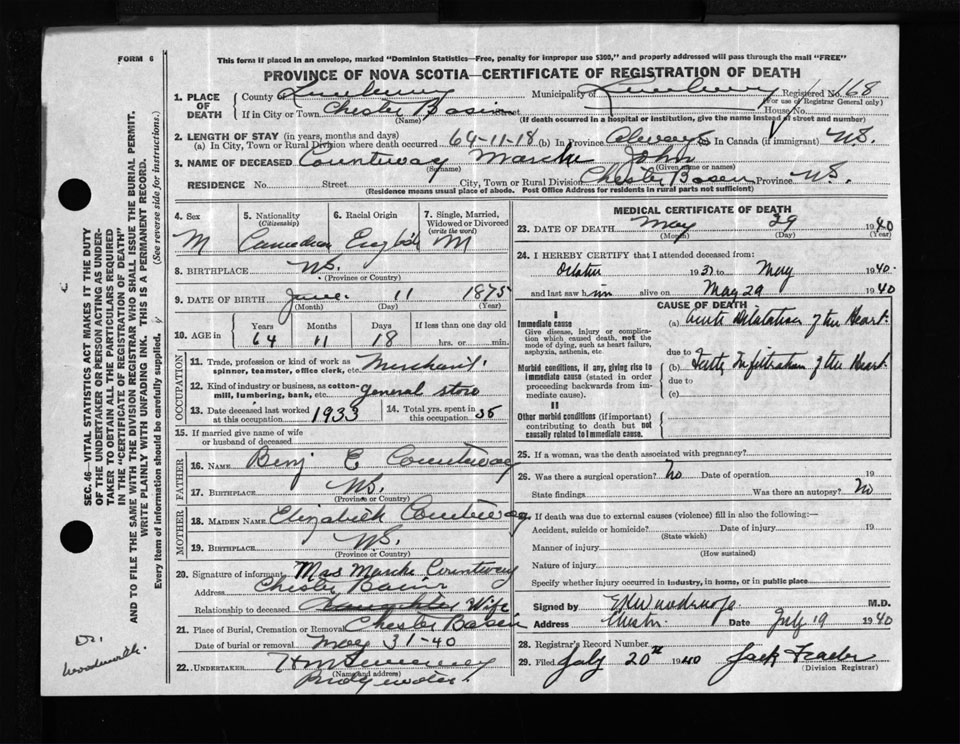 FORM 6
This form if placed in an envelope, marked "Dominion Statistics—Free, penalty for improper use $300," and properly addressed will pass through the mail "FREE"
PROVINCE OF NOVA SCOTIA—CERTIFICATE OF REGISTRATION OF DEATH
1. PLACE OF DEATH County of Lunenburg Municipality of Lunenburg Registered No. 168
(For use of Registrar General only)
If in City or Town Chester Basin Street House No.
(Name) (If death occurred in a hospital or institution, give the name instead of street and number)
2. LENGTH OF STAY (in years, months and days)
(a) In City, Town or Rural Division where death occurred 64-11-18 (b) In Province Always (c) In Canada (if immigrant) N.S.
3. NAME OF DECEASED Countway John
(Surname) (Given name or names)
RESIDENCE No. Street. City, Town or Rural Division Chester Basin Province N.S.
(Residence means usual place of abode. Post Office Address for residents in rural parts not sufficient)
4. Sex 5. Nationality (Citizenship) 6. Racial Origin 7. Single, Married, Widowed or Divorced (write the word)
M Canadian English M
8. BIRTHPLACE N.S.
(Province or Country)
9. DATE OF BIRTH June 11 1875
(Month) (Day) (Year)
10. AGE in Years Months Days If less than one day old
64 11 18 hrs. or min.
OCCUPATION
11. Trade, profession or kind of work as spinner, teamster, office clerk, etc. Merchant
12. Kind of industry or business, as cotton-mill, lumbering, bank, etc. general store
13. Date deceased last worked at this occupation 1933 14. Total yrs. spent in this occupation 35
15. If married give name of wife or husband of deceased
FATHER
16. NAME Benj C Countway
17. BIRTHPLACE N.S.
(Province or Country)
MOTHER
18. MAIDEN NAME Elizabeth Countway
19. BIRTHPLACE N.S.
(Province or Country)
20. Signature of informant Mrs Countway
Address Chester Basin
Relationship to deceased daughter Wife
21. Place of Burial, Cremation or Removal Chester Basin
Date of burial or removal May 31-40
22. UNDERTAKER
(Name and address)
Bridgewater
MEDICAL CERTIFICATE OF DEATH
23. DATE OF DEATH May 29 1940
(Month) (Day) (Year)
24. I HEREBY CERTIFY that I attended deceased from:
October 1937 to May 1940
and last saw him alive on May 29 1940
CAUSE OF DEATH
I
Immediate cause
Give disease, injury or complication which caused death, not the mode of dying, such as heart failure, asphyxia, asthenia, etc.
(a) Acute Dilatation of the Heart
due to
Morbid conditions, if any, giving rise to immediate cause (stated in order proceeding backwards from immediate cause).
(b) Fatty Infiltration of the Heart
due to
(c)
II
Other morbid conditions (if important) contributing to death but not causally related to immediate cause.
25. If a woman, was the death associated with pregnancy?
26. Was there a surgical operation? No Date of operation 19
State findings Was there an autopsy? No
27. If death was due to external causes (violence) fill in also the following:—
Accident, suicide or homicide? Date of injury 19
(State which)
Manner of injury
(How sustained)
Nature of injury
Specify whether injury occurred in industry, in home, or in public place
Signed by M.D.
Address Chester Date July 19 1940
28. Registrar's Record Number
29. Filed July 20th 1940 Jack
(Division Registrar)
SEC. 46—VITAL STATISTICS ACT MAKES IT THE DUTY OF THE UNDERTAKER OR PERSON ACTING AS UNDERTAKER TO OBTAIN ALL THE PARTICULARS REQUIRED IN THE "CERTIFICATE OF REGISTRATION OF DEATH" AND TO FILE THE SAME WITH THE DIVISION REGISTRAR WHO SHALL ISSUE THE BURIAL PERMIT.
WRITE PLAINLY WITH UNFADING INK. THIS IS A PERMANENT RECORD.
Every item of information should be carefully supplied. (See reverse side for instructions.)
Dr.
Woodworth.